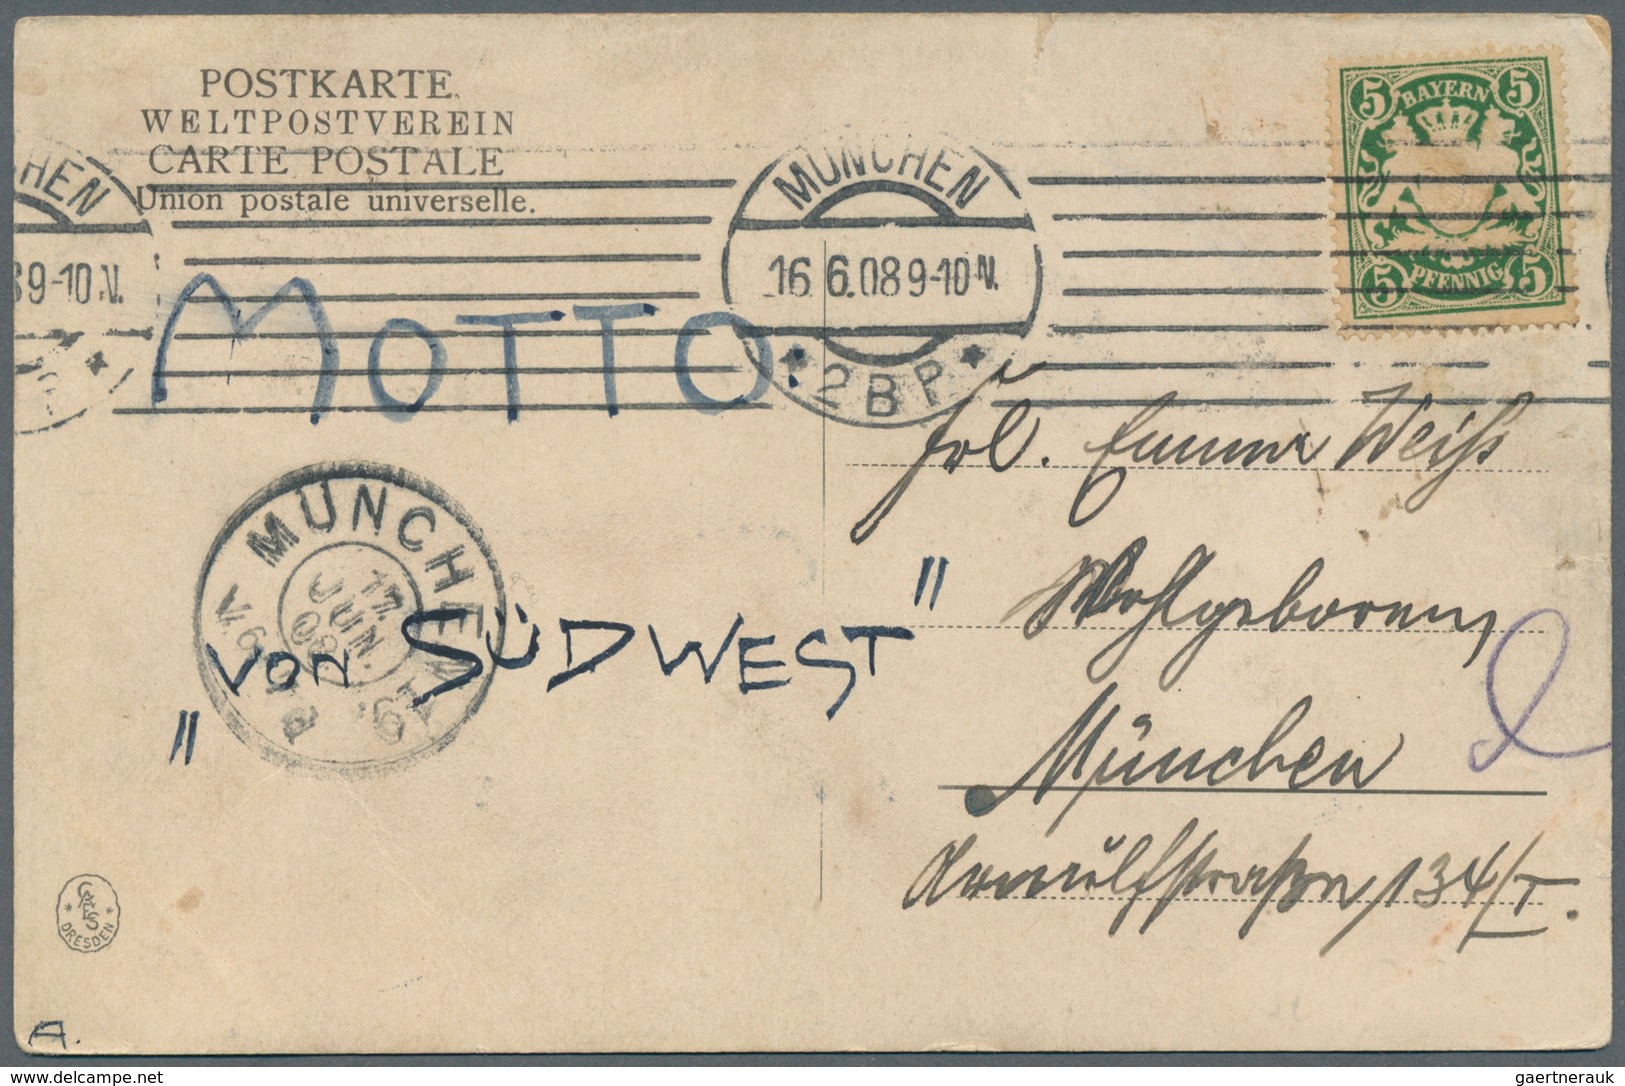 POSTKARTE.
WELTPOSTVEREIN
CARTE POSTALE
Union postale universelle.
5 BAYERN 5
5 PFENNIG 5
HEN
89-10 V.
MÜNCHEN
16.6.08 9-10 N.
* 2 B P *
MOTTO:
Frl. Emma Weiß
Wohlgeboren
München
Arnulfstraße 134/I.
MÜNCHEN
17.
JUN.
08
"VON SÜDWEST"
DRESDEN
A.
delcampe.net
gaertnerauk